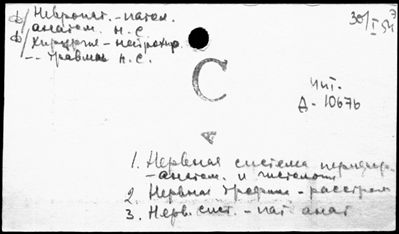 Ф/ Невропат. - патол.
анатом. Н.С.
Ф/ Хирургия - нейрохир.
-- травмы Н.С.
30/I 54
С
Чит.
Д-10676
А
1. Нервная система перифер.
- анатом. и гистология
2. Нервная трофика - расстр
3. Нерв. сист. - пат. анат